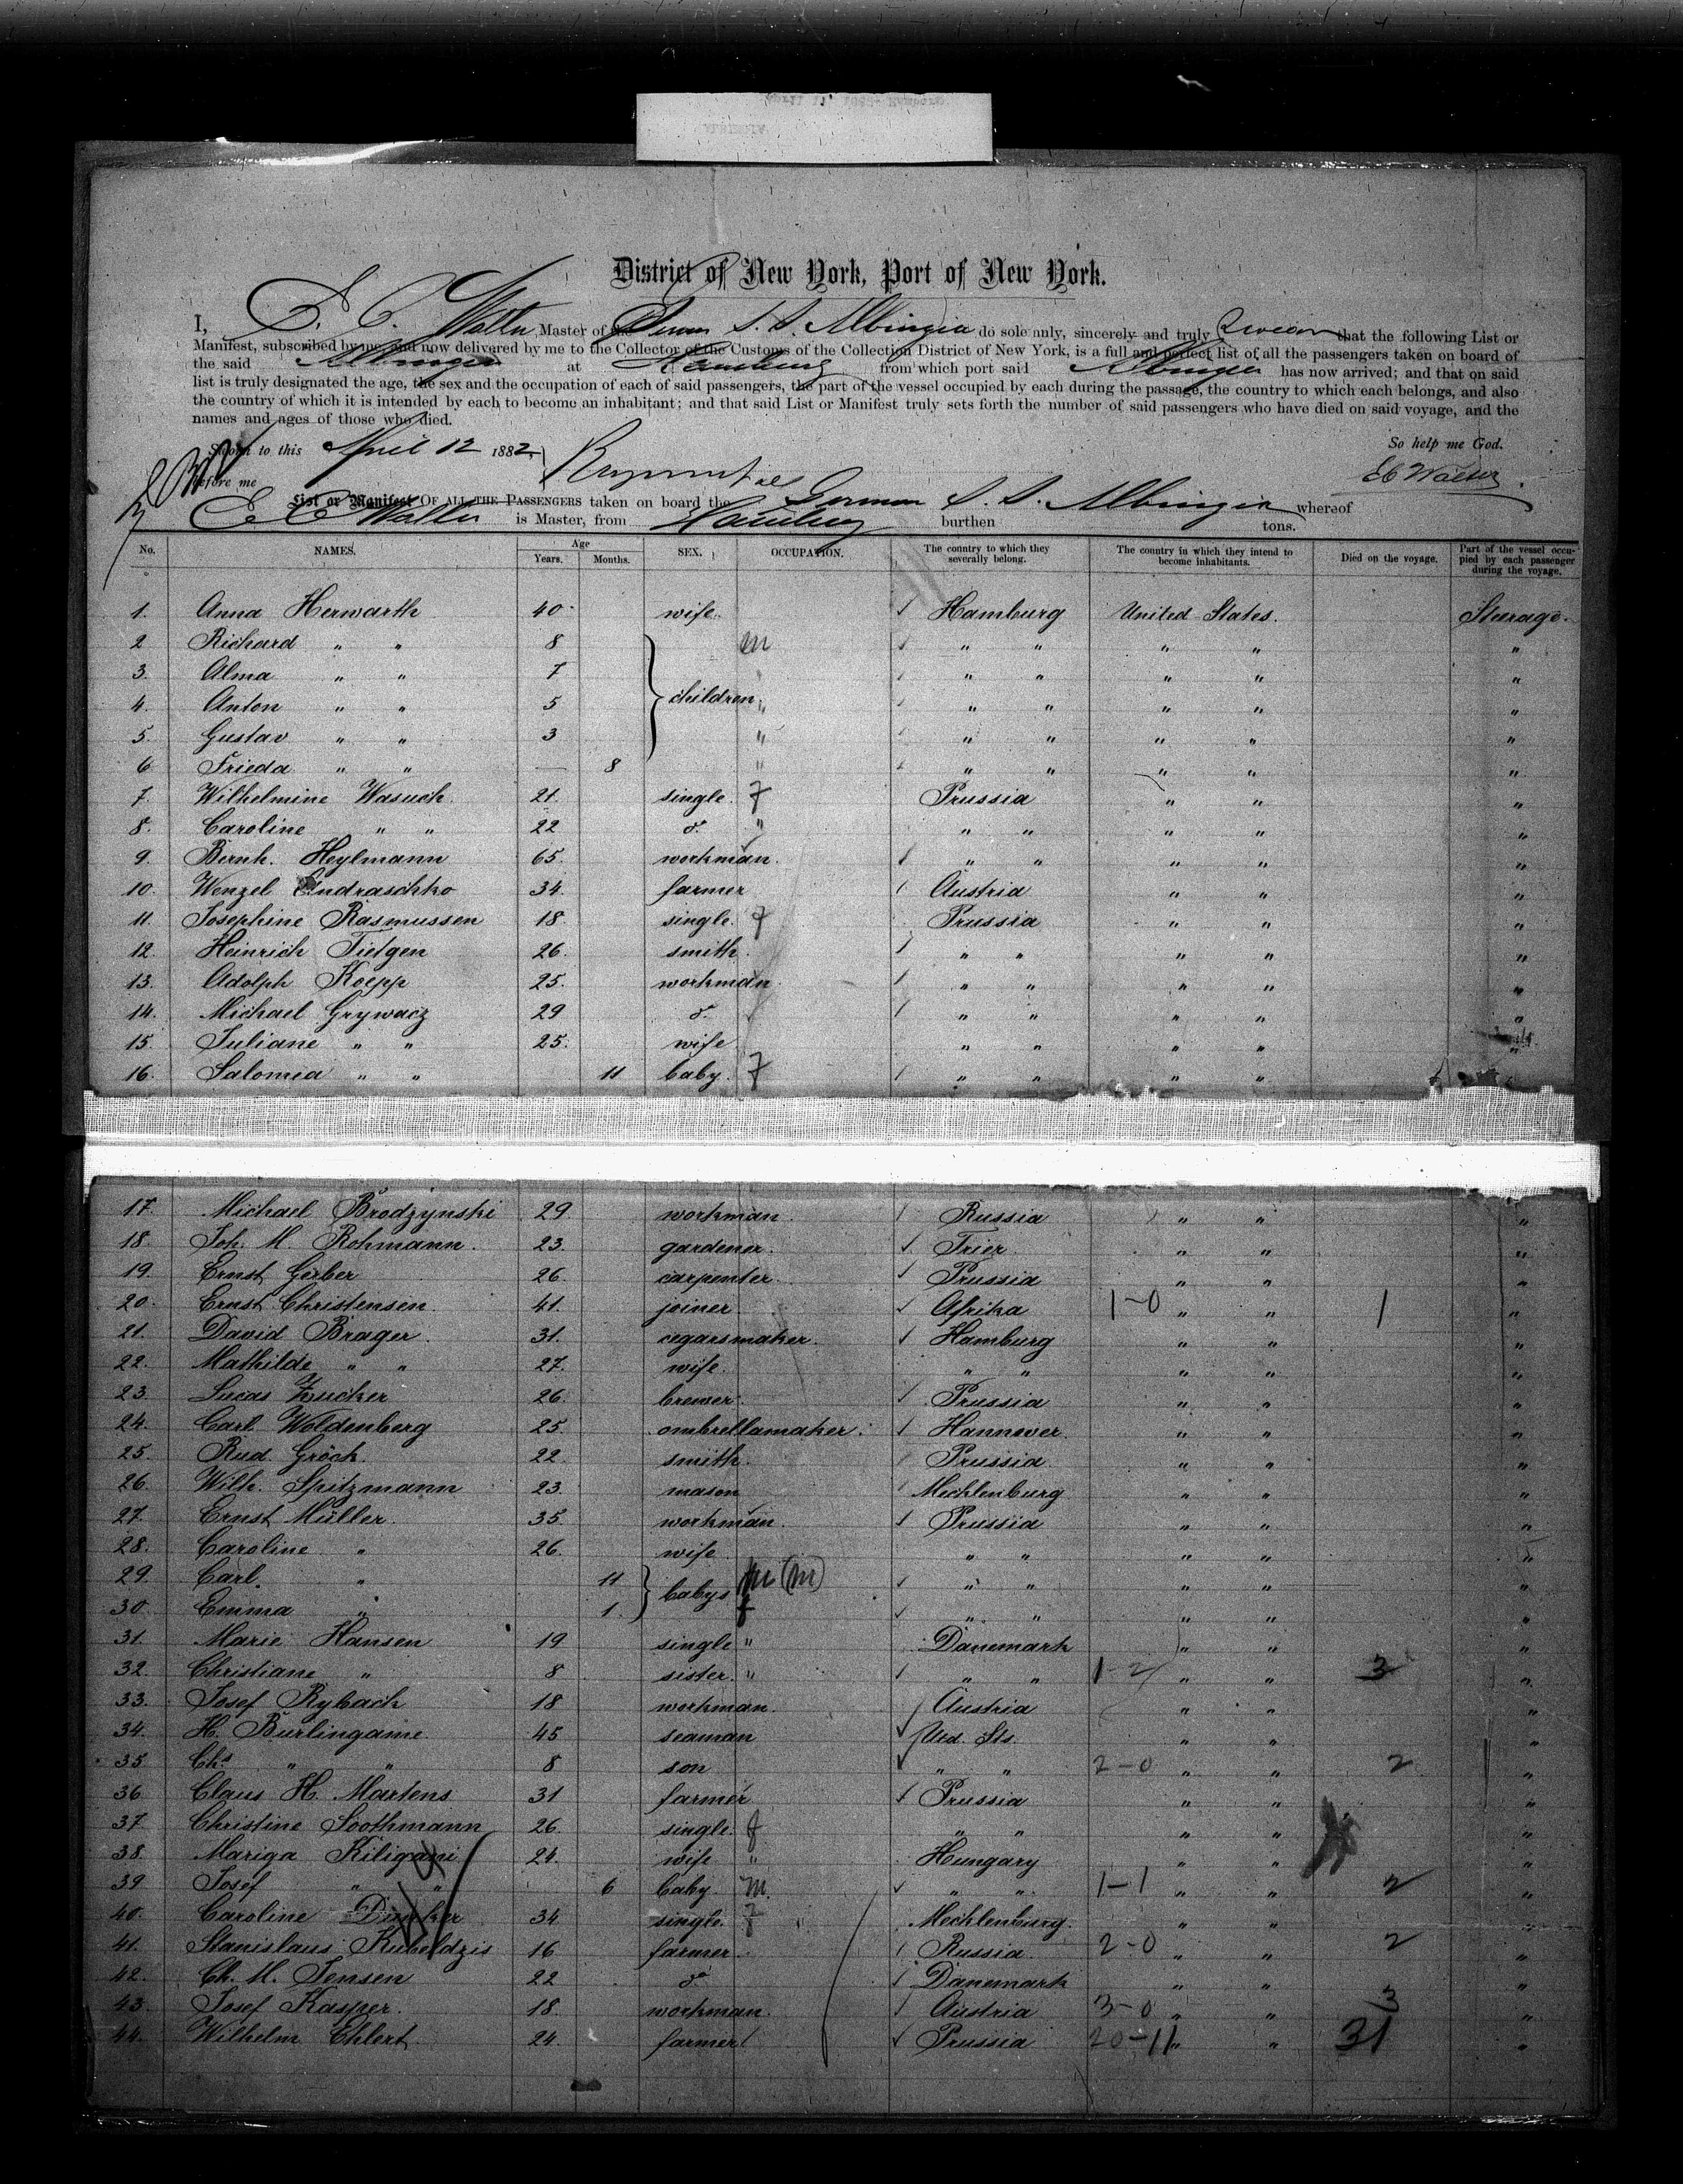 District of New York, Port of New York.
I, E. C. Walter, Master of the German S. S. Albingia do solemnly, sincerely and truly swear that the following List or
Manifest, subscribed by me, and now delivered by me to the Collector of the Customs of the Collection District of New York, is a full and perfect list of all the passengers taken on board of
the said Albingia at Hamburg from which port said Albingia has now arrived; and that on said
list is truly designated the age, the sex and the occupation of each of said passengers, the part of the vessel occupied by each during the passage, the country to which each belongs, and also
the country of which it is intended by each to become an inhabitant; and that said List or Manifest truly sets forth the number of said passengers who have died on said voyage, and the
names and ages of those who died.
So help me God.
Sworn to this April 12 1882
before me
List or Manifest OF ALL THE PASSENGERS taken on board the German S. S. Albingia whereof
is Master, from Hamburg burthen tons.
No. NAMES. Age Years. Months. SEX. OCCUPATION. The country to which they severally belong. The country in which they intend to become inhabitants. Died on the voyage. Part of the vessel occupied by each passenger during the voyage.
1. Anna Herwarth 40 wife Hamburg United States. Stearage.
2 Richard " " 8 m " " " " "
3. Alma " " 7 children " " " " "
4. Anton " " 5 " " " " " "
5. Gustav " " 3 " " " " " "
6 Frieda " " — 8 " " " " " "
7. Wilhelmine Wasuch 21. single. f Prussia " " "
8. Caroline " " 22 d. " " " " " "
9. Bernh. Heylmann 65. workman. " " " " "
10. Wenzel Andraschko 34. farmer Austria " " "
11. Josephine Rasmussen 18. single. f Prussia " " "
12. Heinrich Tietgen 26. smith. " " " " "
13. Adolph Koepp 25. workman. " " " " "
14. Michael Grywacz 29 d. " " " " "
15. Juliane " " 25. wife " " " " "
16. Salomea " " 11 baby. f " " " " "
17. Michael Brodzynski 29 workman. Russia " " "
18. Joh. M. Rohmann. 23. gardener. Trier. " " "
19. Ernst Gerber 26. carpenter. Prussia " " "
20. Ernst Christensen. 41. joiner. Afrika 1-0 " " 1 "
21. David Brager. 31. cegarsmaker. Hamburg " " "
22. Mathilde " " 27. wife. " " " " "
23. Lucas Zucker 26. brewer. Prussia " " "
24. Carl Woldenberg 25. ombrellamaker. Hannover. " " "
25. Rud. Gröck. 22. smith. Prussia " " "
26. Wilh. Spitzmann 23. mason Mecklenburg " " "
27. Ernst Müller. 35. workman. Prussia " " "
28. Caroline " 26. wife " " " " "
29. Carl. " 11 babys m (m) " " " " "
30. Emma " 1. f " " " " "
31. Marie Hansen 19 single " Danemark " " "
32. Christiane " 8 sister. " " " 1-2 " " 3 "
33. Josef Rybach 18 workman. Austria " " "
34. H. Burlingame. 45 seaman Utd. Sts. " " "
35. Chs. " " 8 son " " 2-0 " " 2 "
36 Claus H. Martens 31 farmer Prussia " " "
37. Christine Soothmann 26. single. f " " " " "
38. Mariga Kiligani 24. wife " Hungary " " "
39 Josef " " 6 baby m. " " 1-1 " " 2 "
40. Caroline 34 single. f Mecklenburg. " " "
41. Stanislaus 16 farmer. Russia 2-0 " " 2 "
42. Ch. M. Jensen 22 d. Danemark " " "
43. Josef Kasper. 18. workman. Austria 3-0 " " 3 "
44. Wilhelm Ehlert 24. farmer Prussia 20-11 " " 31 "